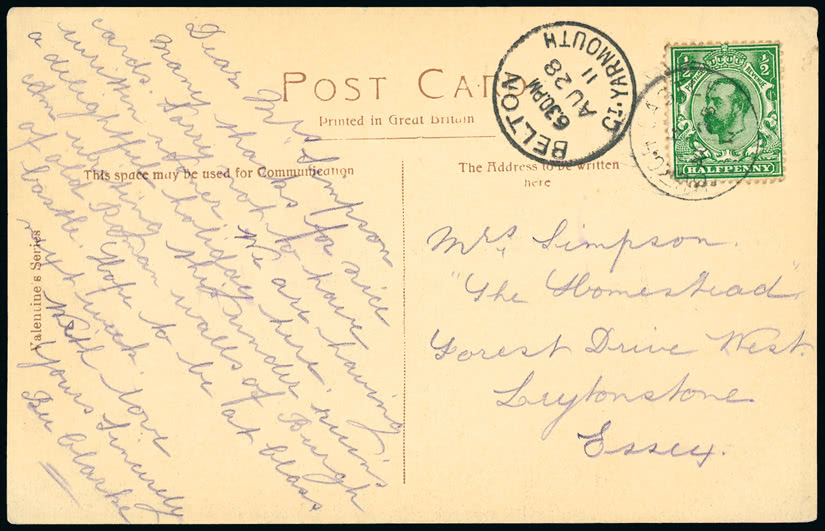 POST CARD
Printed in Great Britain
This space may be used for Communication
The Address to be written
here
Valentine's Series
BELTON
6.30PM
AU 28
11
GT. YARMOUTH
1/2 1/2
POSTAGE REVENUE
HALFPENNY
Dear Mrs Simpson
Many thanks for nice
cards. Sorry not to have
written sooner. We are having
a delightful holiday here,
am writing this under ruins
of old Roman walls of Burgh
Castle. Hope to be at Class
next week.
With love
Yours Sincerely
Clarke
Mrs Simpson.
"The Homestead"
Forest Drive West.
Leytonstone
Essex.